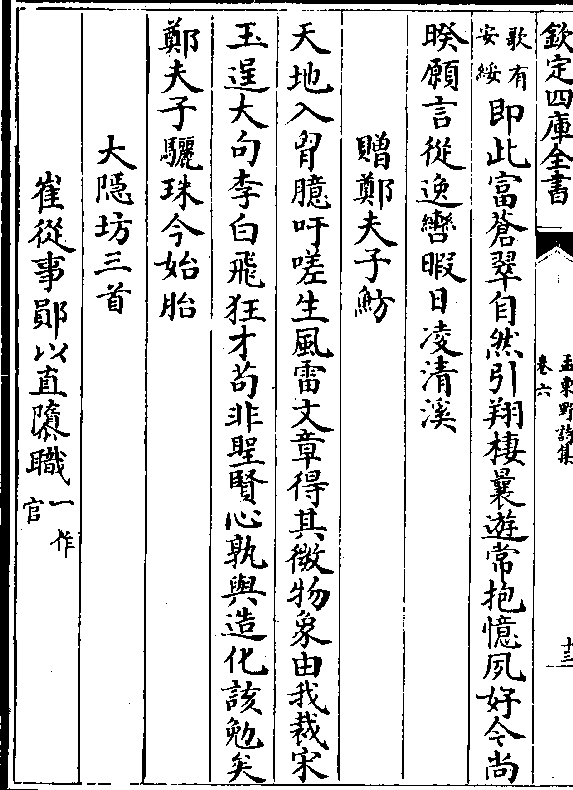 欽定四庫全書
孟東野詩集
卷六
十三
歌有
安綏
即此富蒼翠自然引翔棲曩遊常抱憶夙好今尚
暌願言從逸轡暇日凌清溪
贈鄭夫子魴
天地入胷臆吁嗟生風雷文章得其微物象由我裁宋
玉逞大句李白飛狂才苟非聖賢心孰與造化該勉矣
鄭夫子驪珠今始胎
大隠坊三首
崔從事鄖以直隳職
一作
官